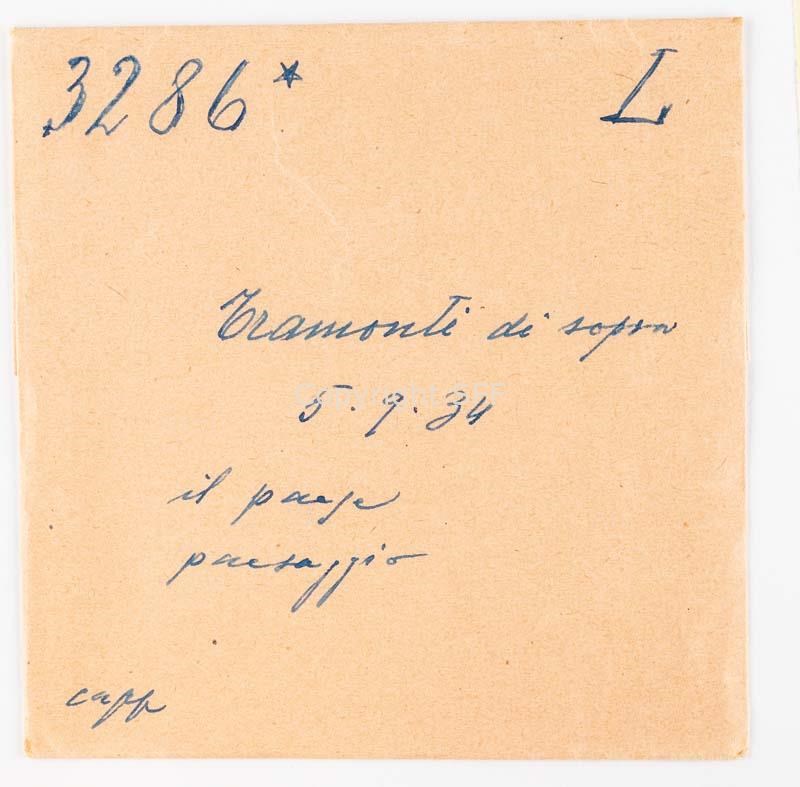 3286* L
Tramonti di sopra
5.9.34
il paese
paesaggio
capp